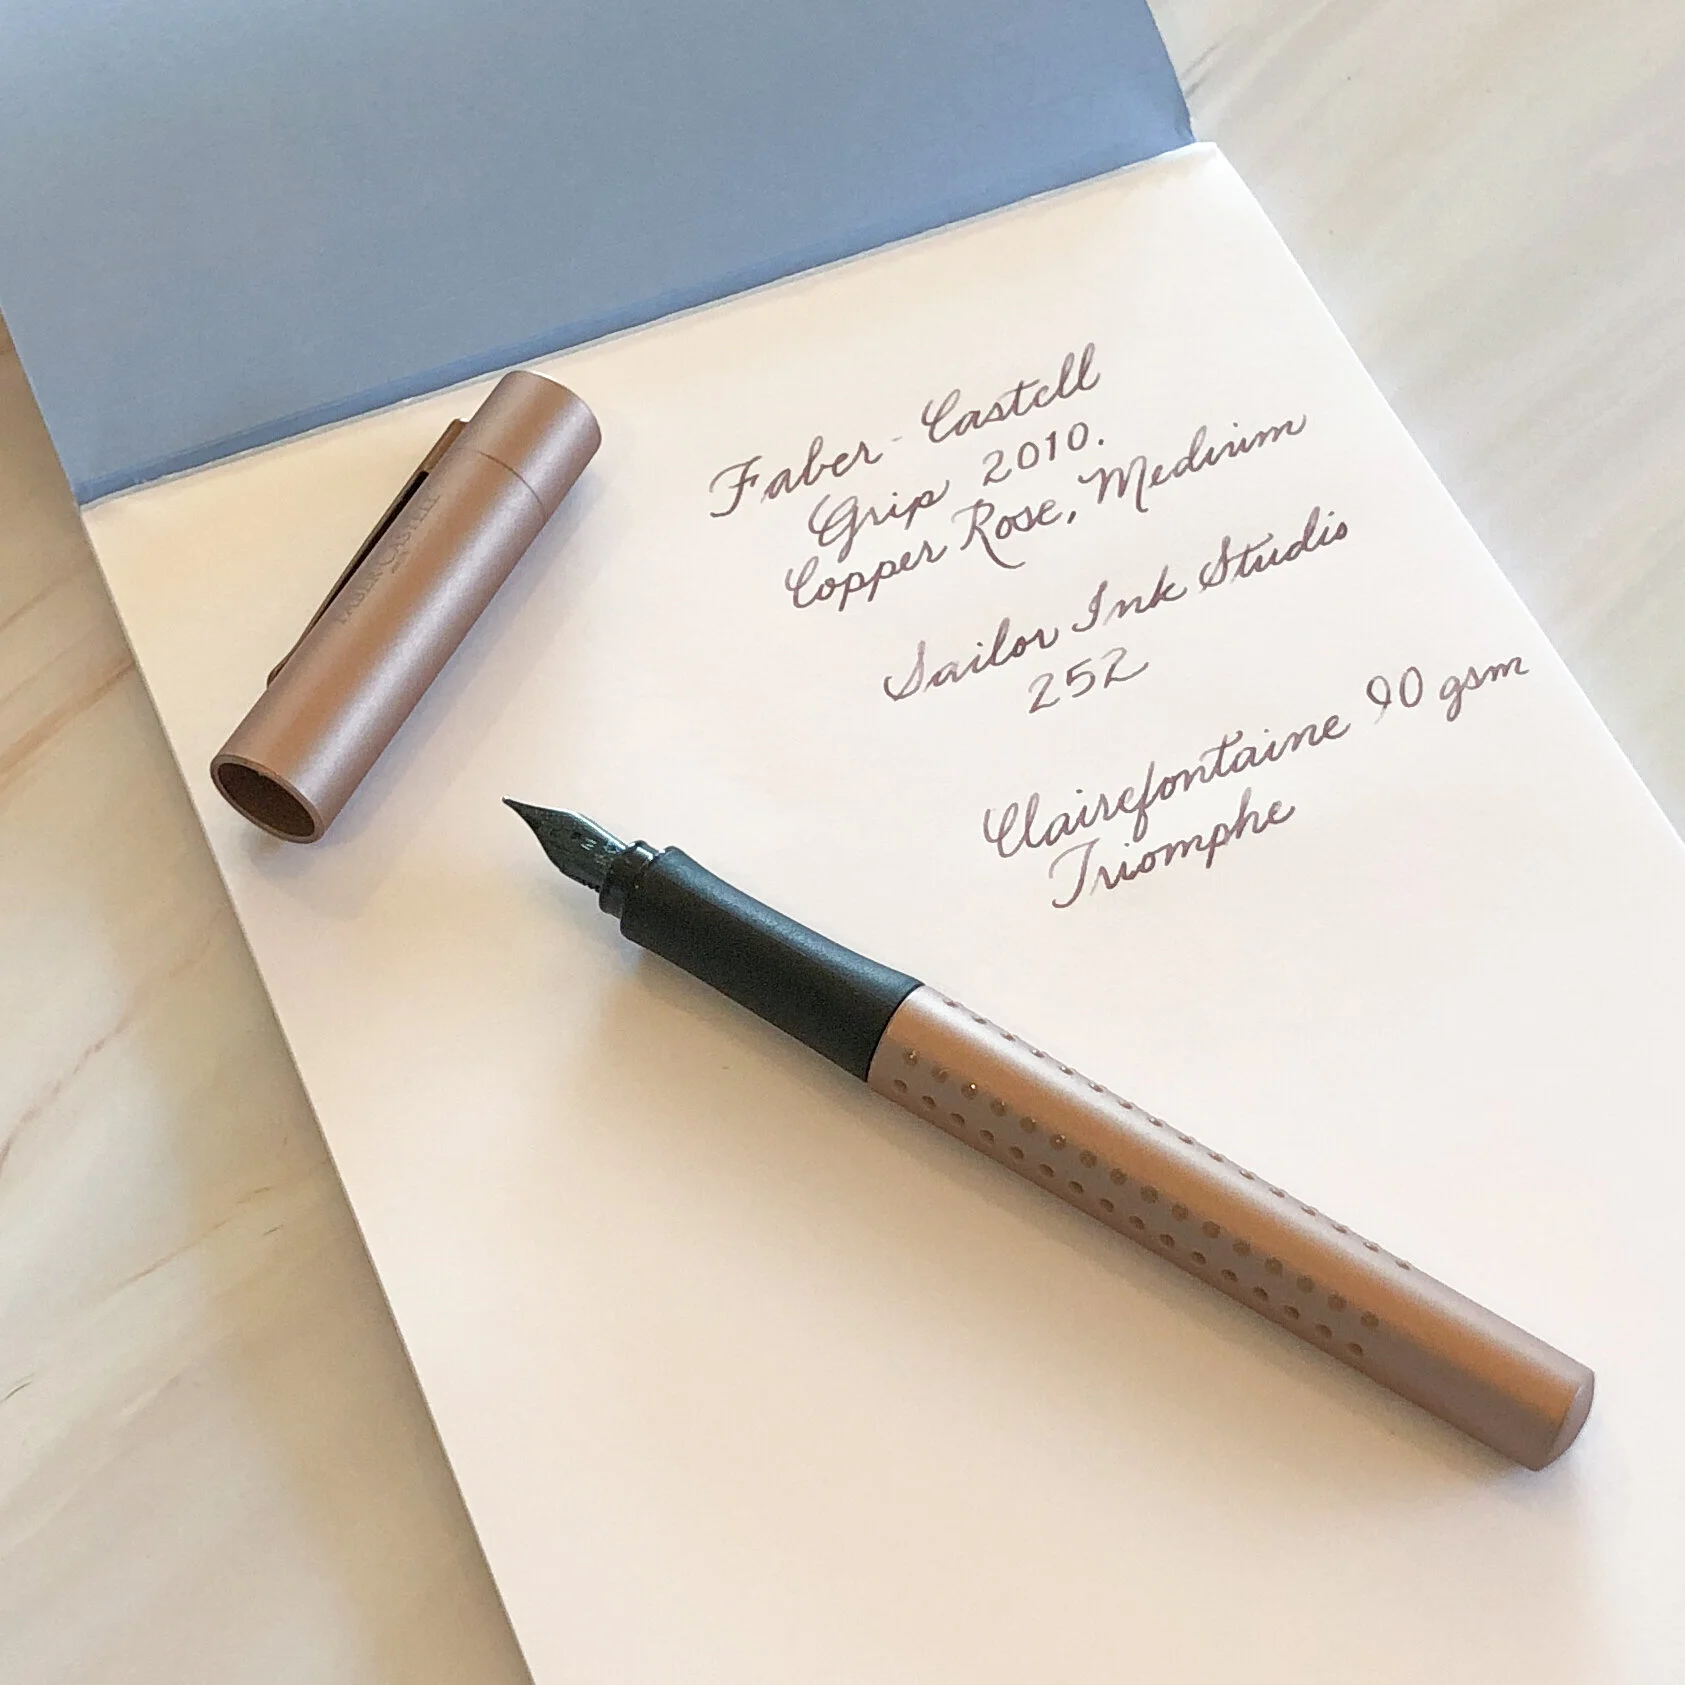 Faber-Castell
Grip 2010.
Copper Rose, Medium
Sailor Ink Studio
252
Clairefontaine 90 gsm
Triomphe
FABER-CASTELL